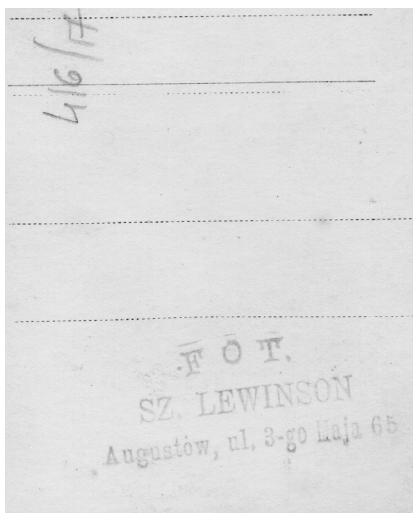 4/6/17
FOT.
SZ. LEWINSON
Augustów, ul. 3-go Maja 65